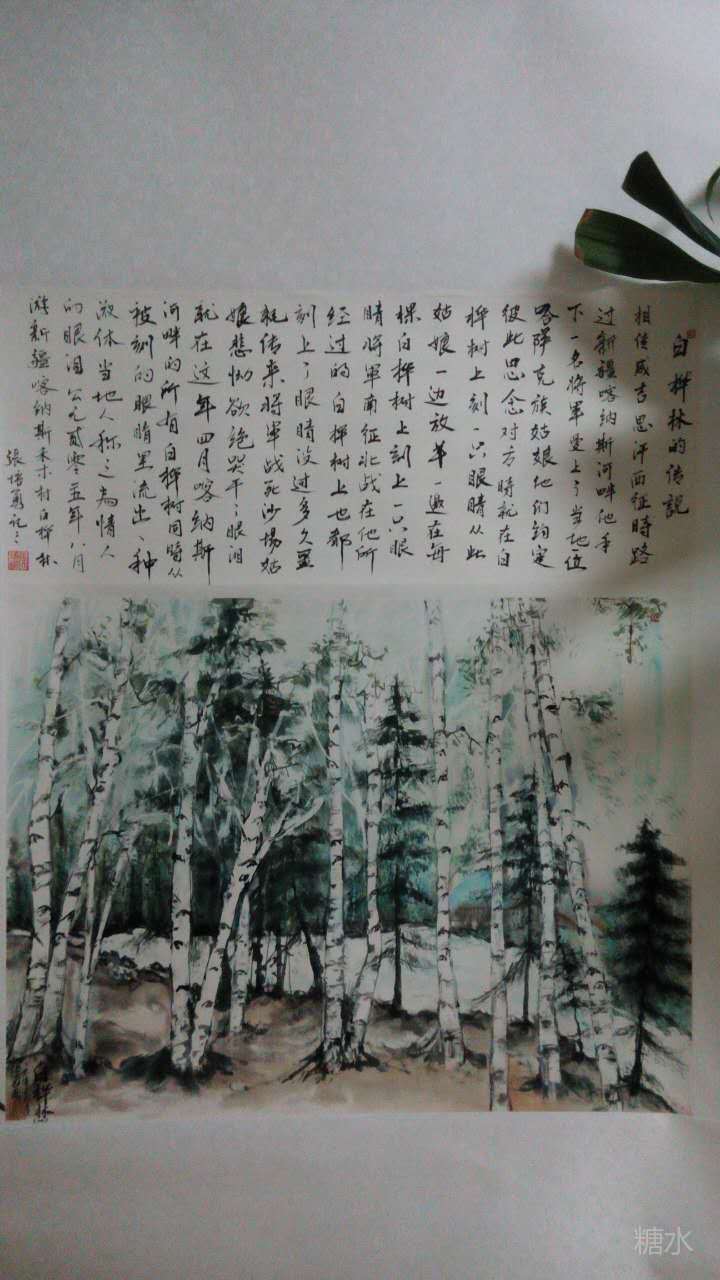 白桦林的传説
相传成吉思汗西征時路
过新疆喀纳斯河畔他手
下一名將軍爱上了当地一位
哈萨克族姑娘他们约定
彼此思念对方時就在白
桦树上刻一只眼睛从此
姑娘一边放羊一边在每
棵白桦树上刻上一只眼
睛將軍南征北战在他所
经过的白桦树上也都
刻上了眼睛没过多久噩
耗传来將军战死沙場姑
娘悲恸欲绝哭干了眼泪
就在这年四月喀纳斯
河畔的所有白桦树同時从
被刻的眼睛里流出一种
液体当地人称之為情人
的眼泪公元贰零一五年八月
游新疆喀纳斯禾木村白桦林
張培勇记之
白桦林
糖水